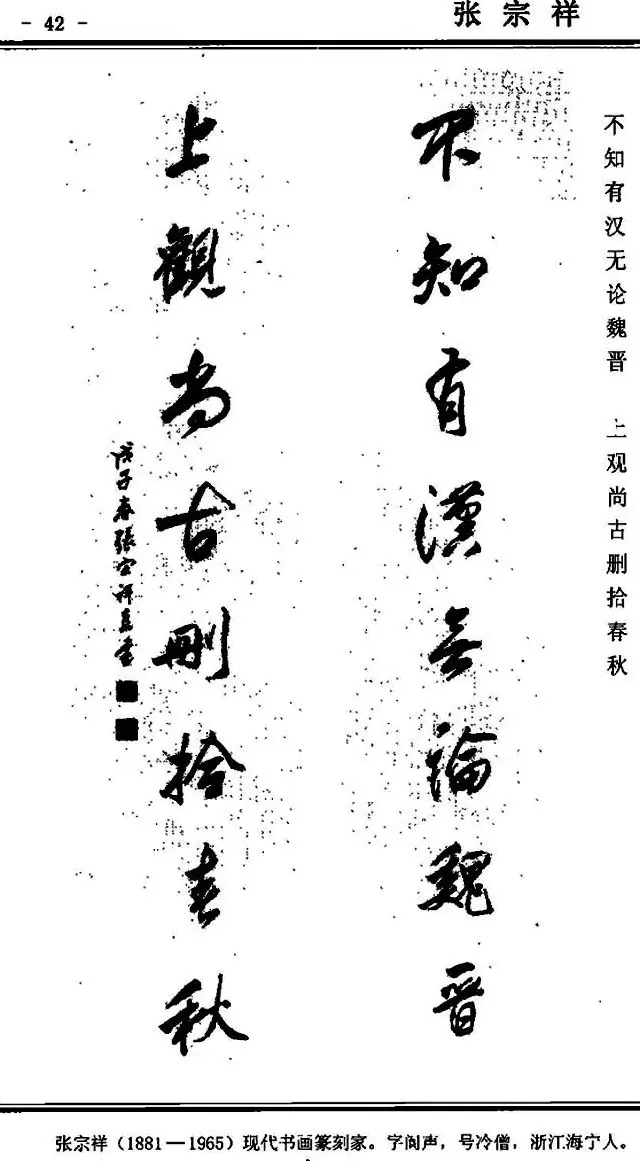 - 42 -
张宗祥
不知有汉无论魏晋 上观尚古删拾春秋
不知有漢無論魏晉
上觀尚古刪拾春秋
戊子春張宗祥
张宗祥（1881—1965）现代书画篆刻家。字阆声，号冷僧，浙江海宁人。